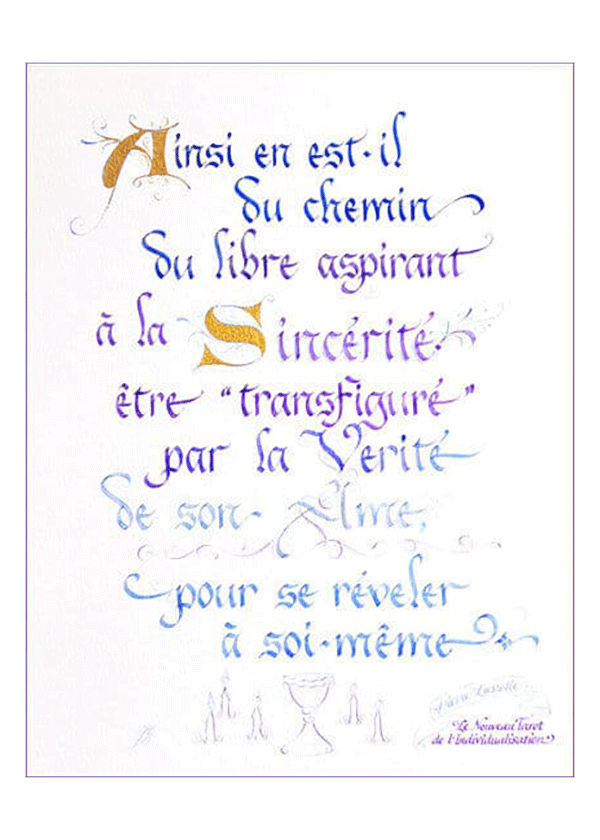 Ainsi en est-il
du chemin
du libre aspirant
à la Sincérité
être "transfiguré"
par la Verité
de son Âme,
pour se réveler
à soi-même
Le Nouveau Tarot
de l'Individualisation